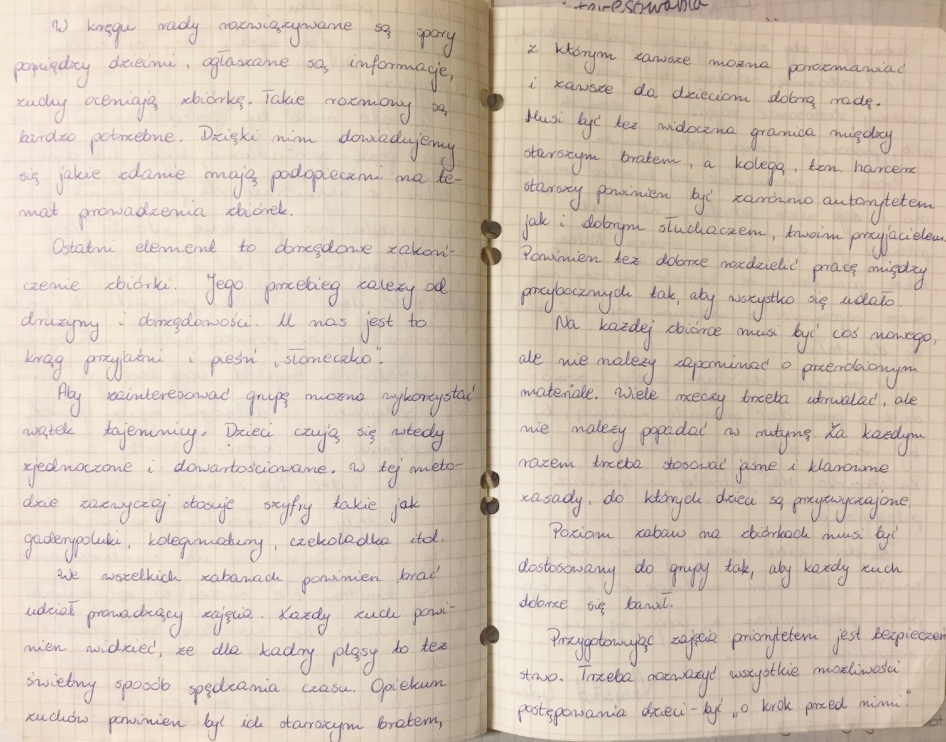 W kręgu rady rozwiązywane są spory
pomiędzy dziećmi, ogłaszane są informacje,
zuchy oceniają zbiórkę. Takie rozmowy są
bardzo potrzebne. Dzięki nim dowiadujemy
się jakie zdanie mają podopieczni na te-
mat prowadzenia zbiórek.
Ostatni element to obrzędowe zakoń-
czenie zbiórki. Jego przebieg zależy od
drużyny i obrzędowości. U nas jest to
krąg przyjaźni i pieśń „słoneczko".
Aby zainteresować grupę można wykorzystać
wątek tajemnicy. Dzieci czują się wtedy
zjednoczone i dowartościowane. W tej meto-
dzie zazwyczaj stosuję szyfry takie jak
gaderypoluki, koleginaturny, czekoladka itd.
We wszelkich zabawach powinien brać
udział prowadzący zajęcia. Każdy zuch powi-
nien widzieć, że dla kadry pląsy to też
świetny sposób spędzania czasu. Opiekun
zuchów powinien być ich starszym bratem,
interesowania
z którym zawsze można porozmawiać
i zawsze da dzieciom dobrą radę.
Musi być też widoczna granica między
starszym bratem, a kolegą, tzn. harcerz
starszy powinien być zarówno autorytetem
jak i dobrym słuchaczem, twoim przyjacielem.
Powinien też dobrze rozdzielić pracę między
przybocznych tak, aby wszystko się udało.
Na każdej zbiórce musi być coś nowego,
ale nie należy zapominać o przerobionym
materiale. Wiele rzeczy trzeba utrwalać, ale
nie należy popadać w rutynę. Za każdym
razem trzeba stosować jasne i klarowne
zasady, do których dzieci są przyzwyczajone.
Poziom zabaw na zbiórkach musi być
dostosowany do grupy tak, aby każdy zuch
dobrze się bawił.
Przygotowując zajęcia priorytetem jest bezpieczeń
stwo. Trzeba rozważyć wszystkie możliwości
postępowania dzieci - być „o krok przed nimi"